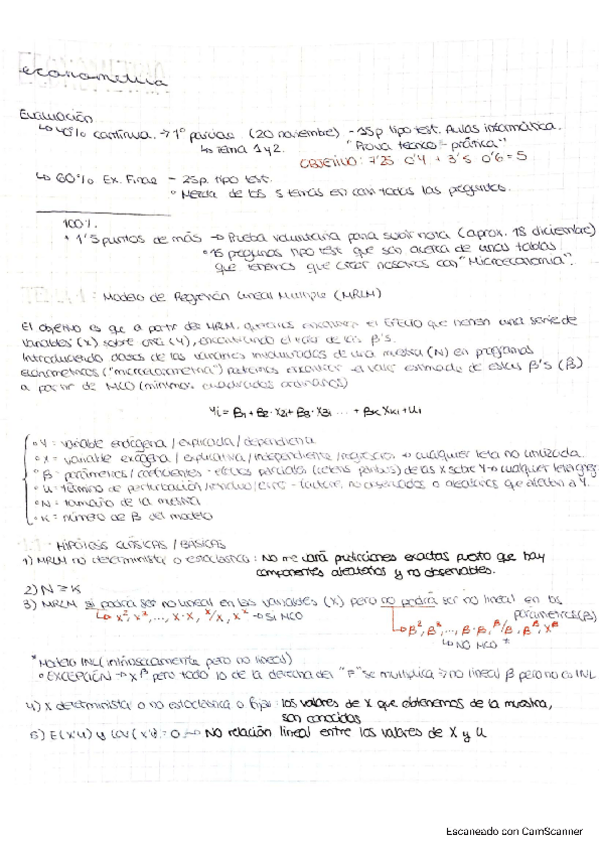 econometria
Evaluación
↳ 40% continua. → 1º parcial (20 noviembre) - 15p tipo test. Aulas informática.
↳ Tema 1 y 2. "Prueba técnico-práctica"
OBJETIVO: 7'25 0'4 + 3'5 0'6 = 5
↳ 60% Ex. Final - 25p. tipo test.
• Mezcla de los 5 temas en casi todas las preguntas.
100%.
• 1'5 puntos de más → Prueba voluntaria para subir nota (aprox. 18 diciembre)
• 15 preguntas tipo test que son acerca de unas tablas
que tenemos que crear nosotros con "Microeconomia".
: Modelo de Regresión Lineal Múltiple (MRLM)
El objetivo es que a partir de MRLM, queremos encontrar el efecto que tienen una serie de
variables (x) sobre otra (y), encontrando el valor de los β's.
Introduciendo datos de las variables involucradas de una muestra (N) en programas
econometricos ("microeconometria") podremos encontrar el valor estimado de estas β's (β̂)
a partir de MCO (mínimos cuadrados ordinarios)
Yi = β1 + β2·X2i + β3·X3i ... + βK XKi + Ui
• Y = variable endógena / explicada / dependiente
• X = variable exógena / explicativa / independiente / regresor → cualquier letra no utilizada.
• β = parámetros / coeficientes - efectos parciales de las X sobre Y → cualquier letra
• U = término de perturbación / residuo / error - factores no observados o aleatorios que afectan a Y.
• N = tamaño de la muestra
• K = número de β del modelo
HIPÓTESIS CLÁSICAS / BÁSICAS
1) MRLM no determinista o estocástico: No me dará predicciones exactas puesto que hay
componentes aleatorios y no observables.
2) N ≥ K
3) MRLM si podrá ser no lineal en las variables (X) pero no podrá ser no lineal en los
parámetros (β)
↳ SI MCO
↳ NO MCO *
*Modelo INL (intrínsecamente pero no lineal)
• EXCEPCIÓN → X^β pero todo lo de la derecha del "=" se multiplica → no lineal β pero no es INL
4) X determinista o no estocástica o fija: los valores de X que obtenemos de la muestra,
son conocidos
5) E(X'U) y cov (X'U) = 0 → NO relación lineal entre los valores de X y U
Escaneado con CamScanner